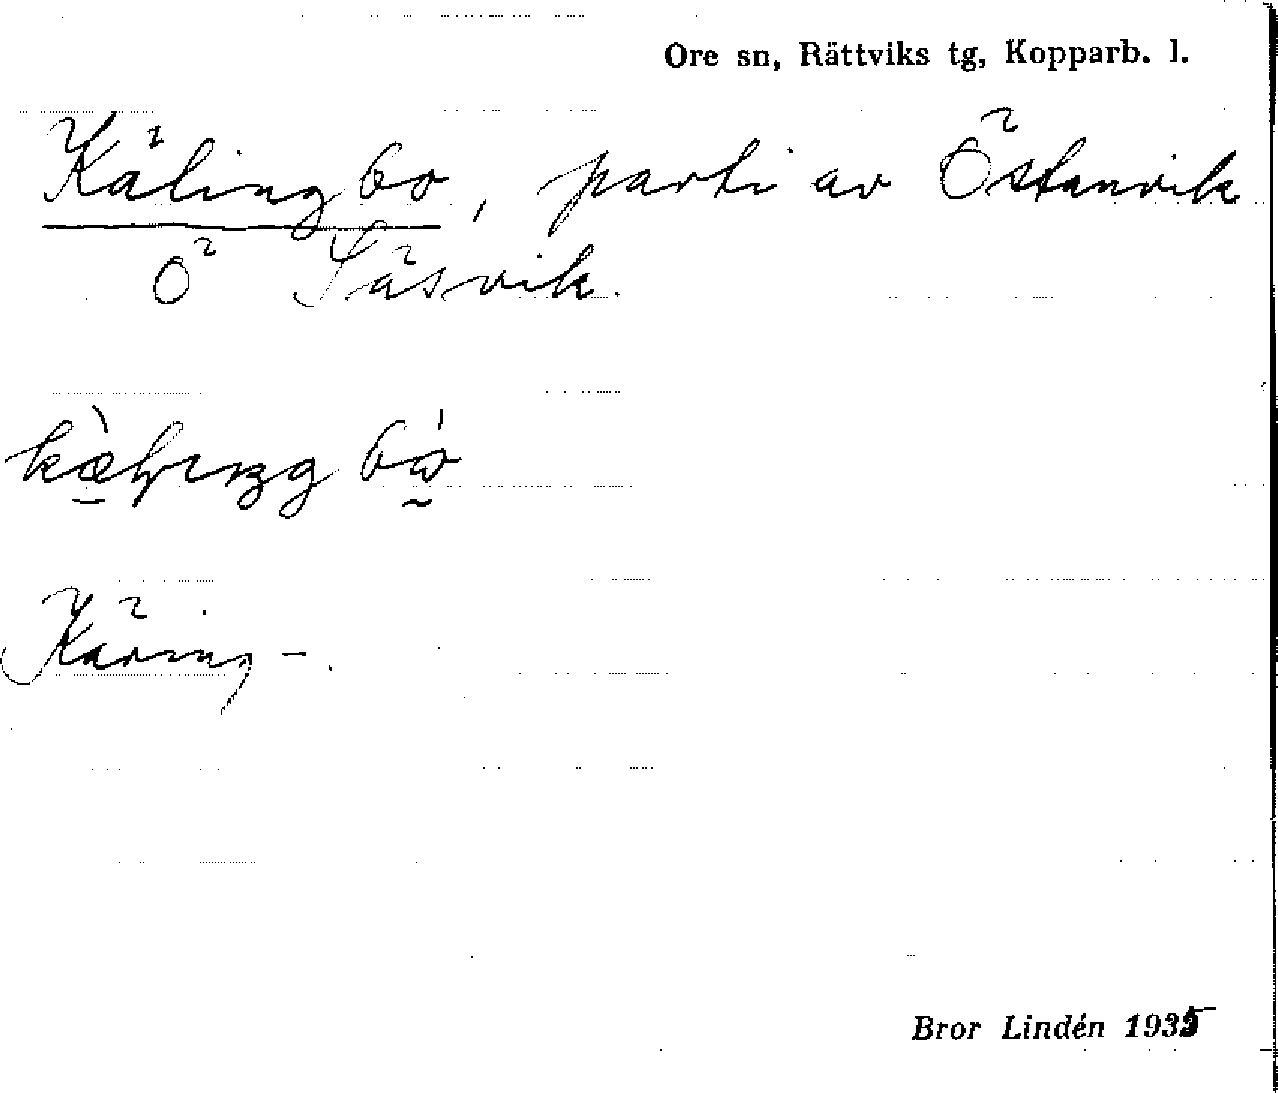 Ore sn, Rättviks tg, Kopparb. l.
Kälingbo, parti av Östanvik
Ö Säsvik.
Käring-.
Bror Lindén 1935